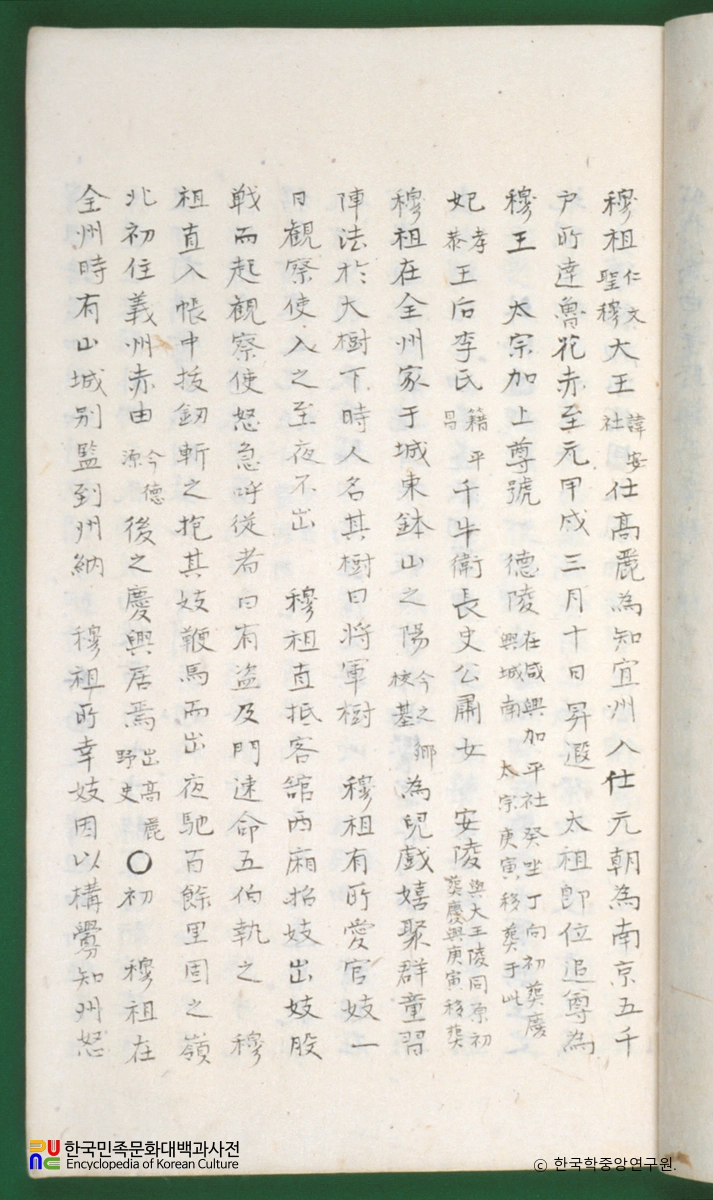 穆祖仁文聖穆大王諱安社仕高麗為知宜州入仕元朝為南京五千
戶所達魯花赤至元甲戌三月十日昇遐 太祖即位追尊為
穆王 太宗加上尊號 德陵在咸興加平社癸坐丁向初葬慶興城南 太宗庚寅移葬于此
妃孝恭王后李氏籍平昌千牛衛長史公肅女 安陵與大王陵同原初葬慶興庚寅移葬
穆祖在全州家于城東鉢山之陽今之鄉校基為兒戲嬉聚群童習
陣法於大樹下時人名其樹曰將軍樹 穆祖有所愛官妓一
日觀察使入之至夜不出 穆祖直抵客舘西廂招妓出妓股
戦而起觀察使怒急呼従者曰有盜及門速命五伯執之 穆
祖直入帳中拔釰斬之抱其妓鞭馬而出夜馳百餘里固之嶺
北初住義州赤由今德源後之慶興居焉出高麗野史〇初 穆祖在
全州時有山城別監到州納 穆祖所幸妓因以構釁知州怒
한국민족문화대백과사전
Encyclopedia of Korean Culture
© 한국학중앙연구원.